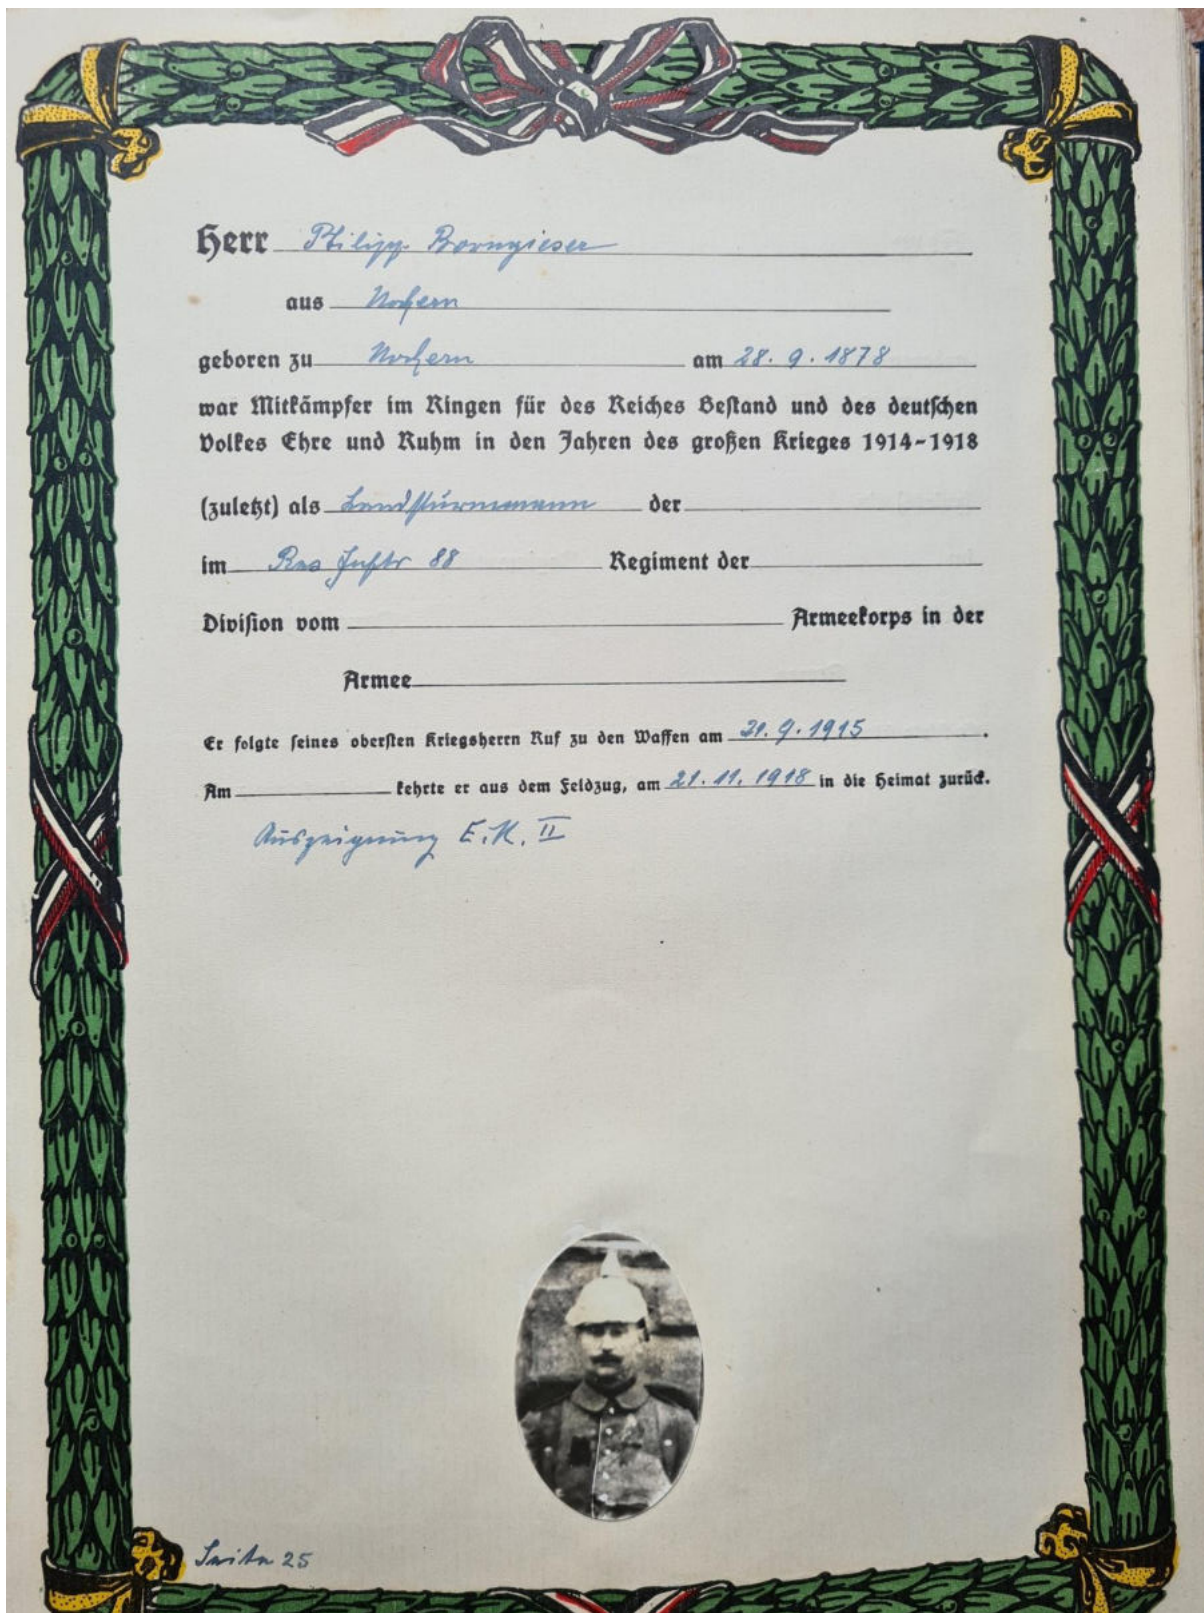 Herr Philipp Borngiesser
aus Nochern
geboren zu Nochern am 28. 9. 1878
war Mitkämpfer im Ringen für des Reiches Bestand und des deutschen
Volkes Ehre und Ruhm in den Jahren des großen Krieges 1914-1918
(zuletzt) als Landsturmmann der
im Res Inftr 88 Regiment der
Division vom Armeekorps in der
Armee
Er folgte seines obersten Kriegsherrn Ruf zu den Waffen am 9. 1915.
Am kehrte er aus dem Feldzug, am 21. 11. 1918 in die Heimat zurück.
Auszeignung E. K. II
Seite 25